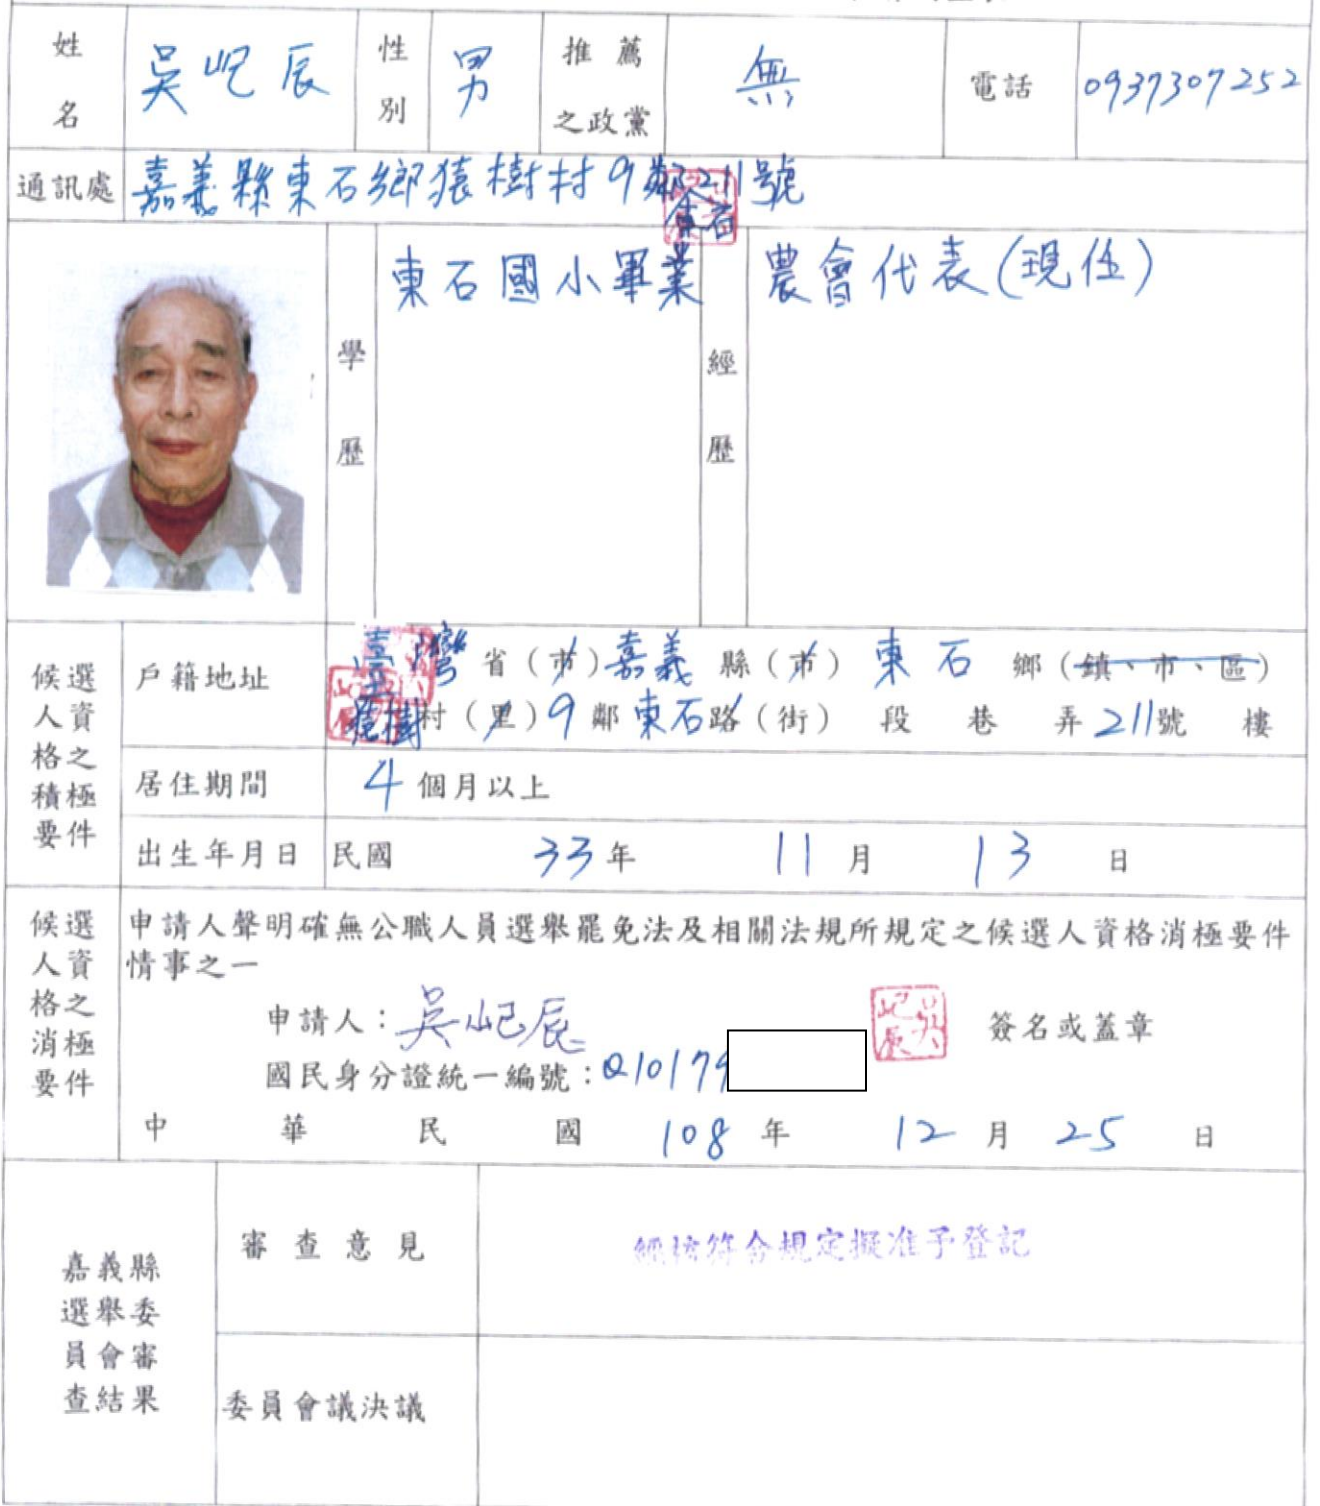 姓名 吳屺辰 性別 男 推薦之政黨 無 電話 0937307252
通訊處 嘉義縣東石鄉猿樹村9鄰211號
學歷 東石國小畢業 經歷 農會代表(現任)
候選人資格之積極要件
戶籍地址 臺灣省(市)嘉義縣(市)東石鄉(鎮、市、區)
猿樹村(里)9鄰東石路(街)段巷弄211號樓
居住期間 4個月以上
出生年月日 民國33年11月13日
候選人資格之消極要件
申請人聲明確無公職人員選舉罷免法及相關法規所規定之候選人資格消極要件
情事之一
申請人:吳屺辰 吳屺辰 簽名或蓋章
國民身分證統一編號:Q10179
中華民國108年12月25日
嘉義縣選舉委員會審查結果
審查意見 經核符合規定擬准予登記
委員會議決議